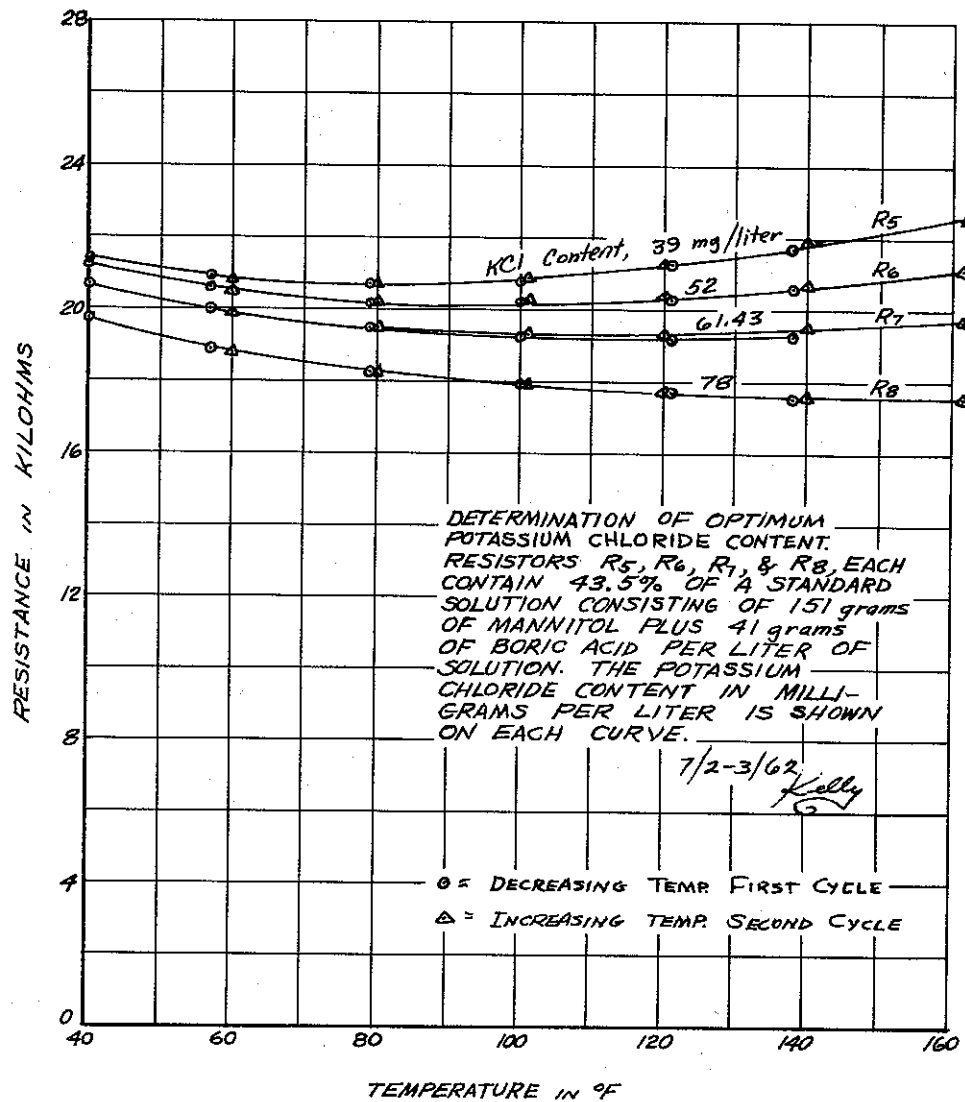 28
24
20
16
12
8
4
0
RESISTANCE IN KILOHMS
KCl Content, 39 mg/liter
R5
52
R6
61.43
R7
78
R8
DETERMINATION OF OPTIMUM
POTASSIUM CHLORIDE CONTENT.
RESISTORS R5, R6, R7, & R8, EACH
CONTAIN 43.5% OF A STANDARD
SOLUTION CONSISTING OF 151 grams
OF MANNITOL PLUS 41 grams
OF BORIC ACID PER LITER OF
SOLUTION. THE POTASSIUM
CHLORIDE CONTENT IN MILLI-
GRAMS PER LITER IS SHOWN
ON EACH CURVE.
7/2-3/62
Kelly
⊙ = DECREASING TEMP. FIRST CYCLE
△ = INCREASING TEMP. SECOND CYCLE
40 60 80 100 120 140 160
TEMPERATURE IN °F